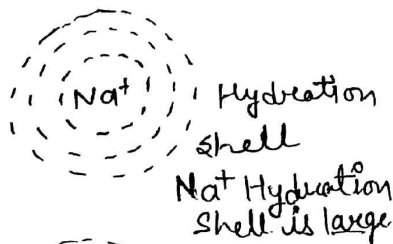 Na⁺
Hydration
shell
Na⁺ Hydration
Shell is large